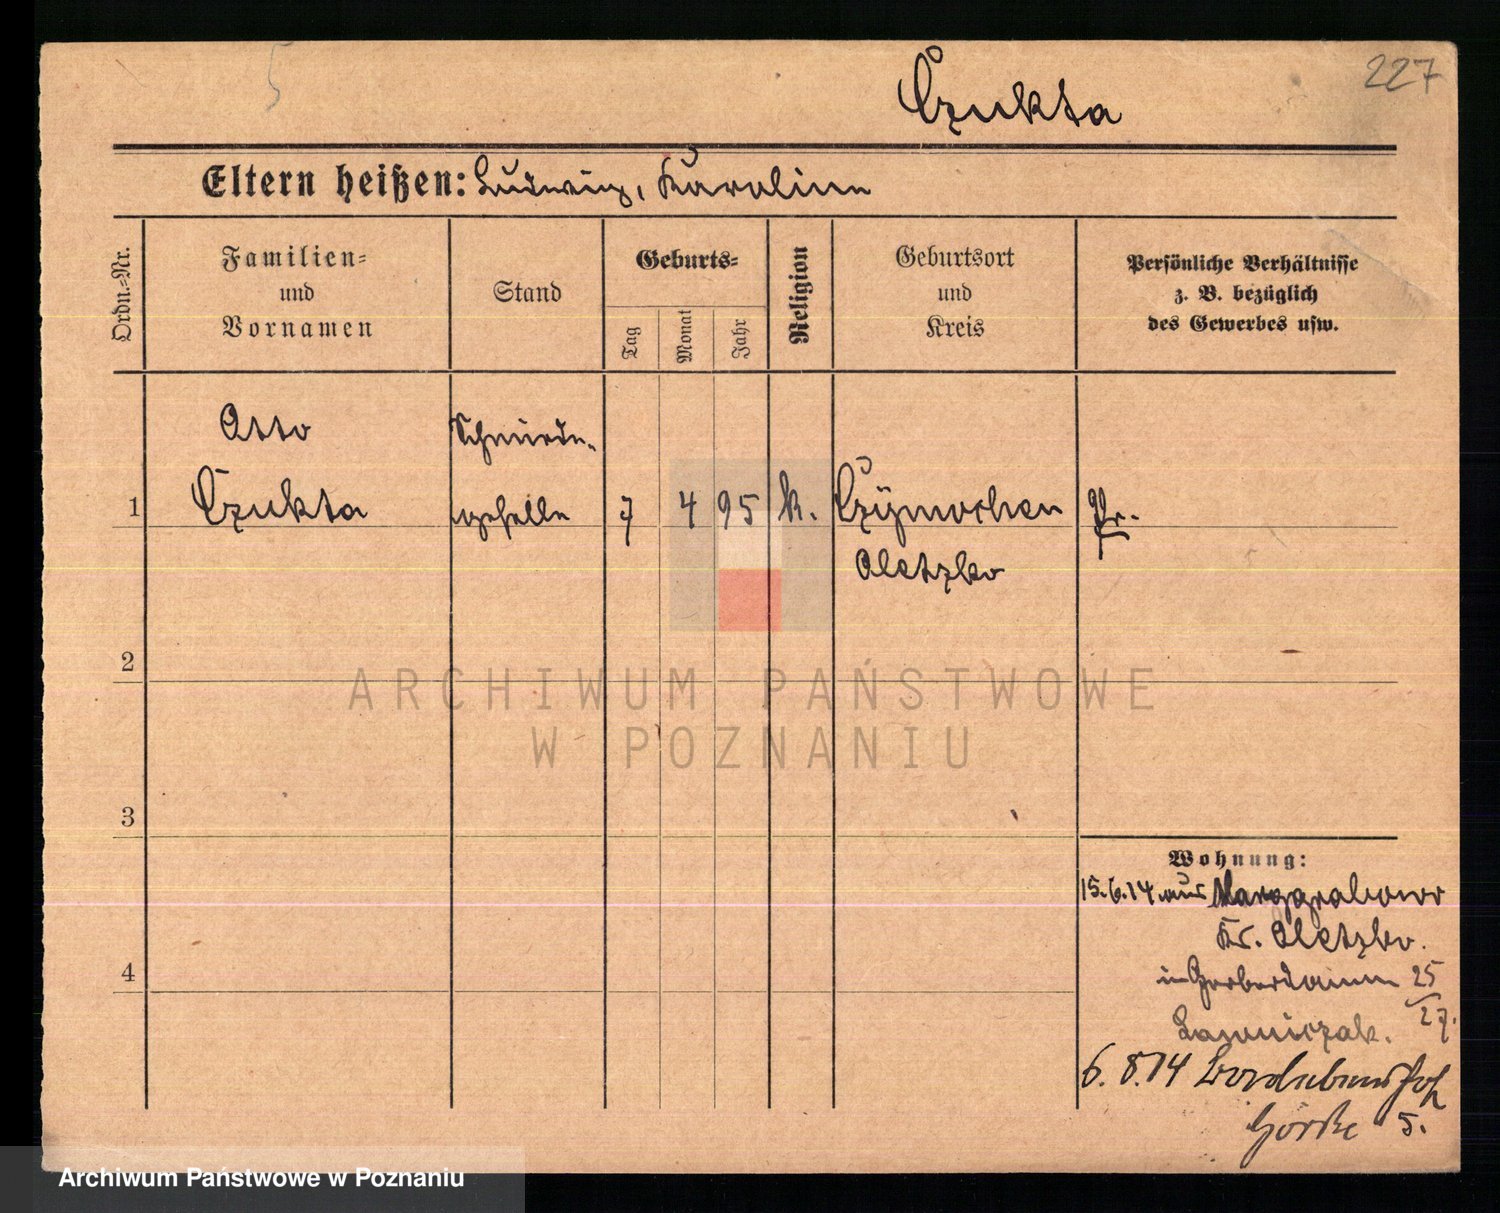 5
227
Czukta
Eltern heißen: Ludwig, Karoline
Ordn.-Nr.
Familien-
und
Vornamen
Stand
Geburts-
Tag
Monat
Jahr
Religion
Geburtsort
und
Kreis
Persönliche Verhältnisse
z. B. bezüglich
des Gewerbes usw.
Otto Schmiede-
1 Czukta geselle 7 4 95 k. Czymochen Pr.
Oletzko
2
3
4
Wohnung:
15.6.14 aus Marggrabowo
Kr. Oletzko.
in Gerberdamm 25/27.
Lawniczak.
6.8.14
5.
ARCHIWUM PAŃSTWOWE
W POZNANIU
Archiwum Państwowe w Poznaniu